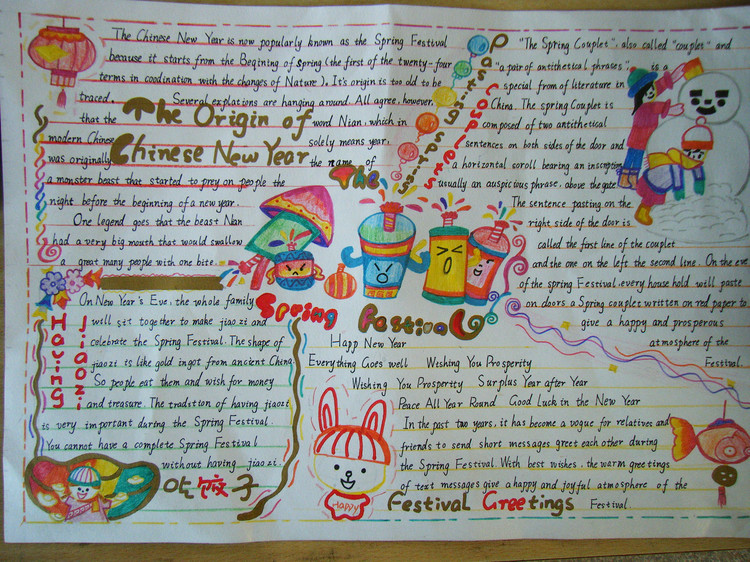 The Chinese New Year is now popularly known as the Spring Festival
because it starts from the Begining of Spring (the first of the twenty-four
terms in coodination with the changes of Nature). It's origin is too old to be
traced. Several explations are hanging around. All agree, however,
that the word Nian, which in
modern Chinese solely means year,
was originally the name of
a monster beast that started to prey on people the
night before the beginning of a new year.
The Origin of
Chinese New Year
One legend goes that the beast Nian
had a very big mouth that would swallow
a great many people with one bite.
Pasting Spring
Couplets
"The Spring Couplet", also called "couplet" and
"a pair of antithetical phrases", is a
special from of literature in
China. The spring Couplet is
composed of two antithetical
sentences on both sides of the door and
a horizontal scroll bearing an inscription
usually an auspicious phrase, above the gate
The sentence pasting on the
right side of the door is
called the first line of the couplet
and the one on the left the second line. On the eve
of the spring Festival, every house hold will paste
on doors a Spring couplet written on red paper to
give a happy and prosperous
atmosphere of the
Festival.
The
Spring Festival
Having
Jiaozi
On New Year's Eve, the whole family
will sit together to make jiao zi and
celebrate the Spring Festival. The shape of
jiaozi is like gold ingot from ancient China
So people eat them and wish for money
and treasure. The tradition of having jiaozi
is very important during the Spring Festival.
You cannot have a complete Spring Festival
without having jiaozi.
吃饺子
Happ New Year
Everything Goes well Wishing You Prosperity
Wishing You Prosperity Surplus Year after Year
Peace All Year Round Good Luck in the New Year
In the past two years, it has become a vogue for relatives and
friends to send short messages greet each other during
the Spring Festival. With best wishes, the warm greetings
of text messages give a happy and joyful atmosphere of the
Festival.
Happy
Festival Greetings